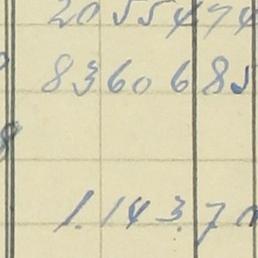 20554 74
83606 85
1.143.7